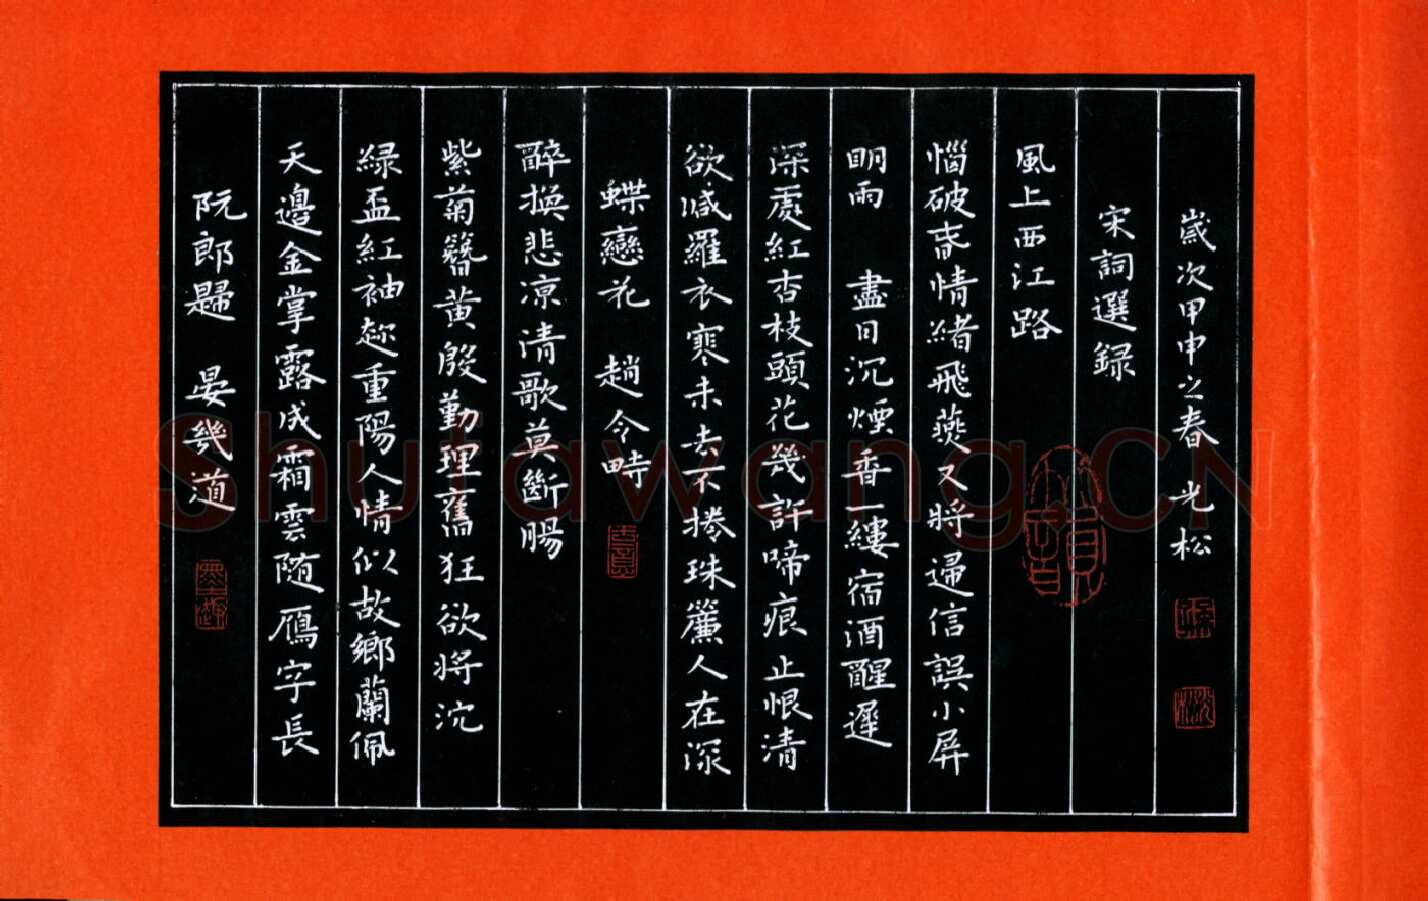 阮郎歸　晏幾道
天邊金掌露成霜雲随鴈字長
緑盃紅袖趂重陽人情似故鄉蘭佩
紫菊簪黄殷勤理舊狂欲将沈
醉換悲凉清歌莫斷腸
蝶戀花　趙令畤
欲減羅衣寒未去不捲珠簾人在深
深處紅杏枝頭花幾許啼痕止恨清
眀雨　盡日沉煙香一縷宿酒醒遲
惱破春情緒飛燕又将歸信誤小屏
風上西江路
宋詞選録
歲次甲申之春　光松
Shufawang.CN